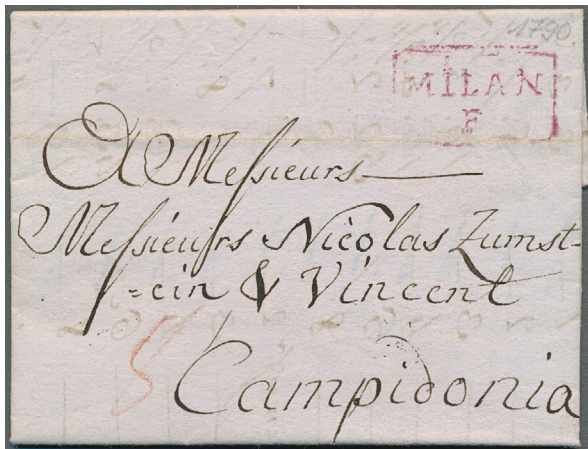 1790
MILAN
F
A Messieurs
Messieurs Nicolas Zumst-
=ein & Vincent
5
Campidonia